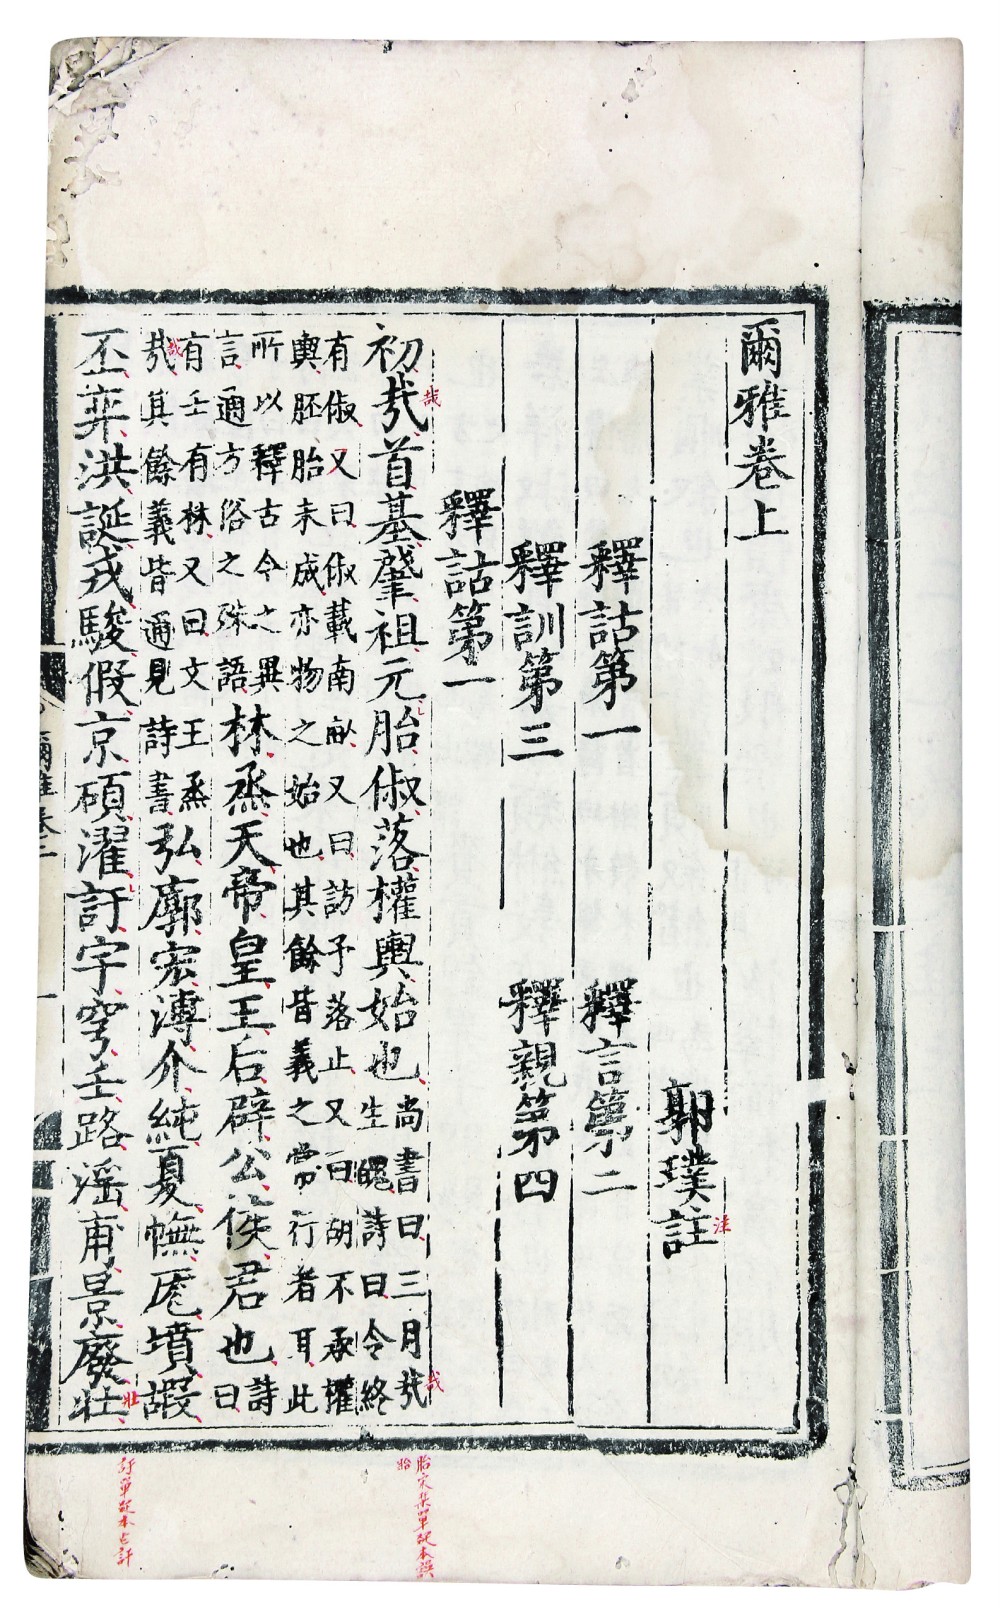 爾雅卷上
郭璞註
注
釋詁第一　釋言第二
釋訓第三　釋親第四
釋詁第一
初哉首基肇祖元胎俶落權輿始也
哉
尚書曰三月哉
哉
生魄詩曰令終
有俶又曰俶載南畝又曰訪予落止又曰胡不承權
輿胚胎未成亦物之始也其餘皆義之常行者耳此
所以釋古今之異
言通方俗之殊語
林烝天帝皇王后辟公侯君也
詩
曰
有壬有林又曰文王烝
哉其餘義皆通見詩書
哉
弘廓宏溥介純夏幠厖墳嘏
丕弈洪誕戎駿假京碩濯訏宇穹壬路淫甫景廢壯
壯
爾雅卷
一
胎宋槧單疏本誤
訏單疏本